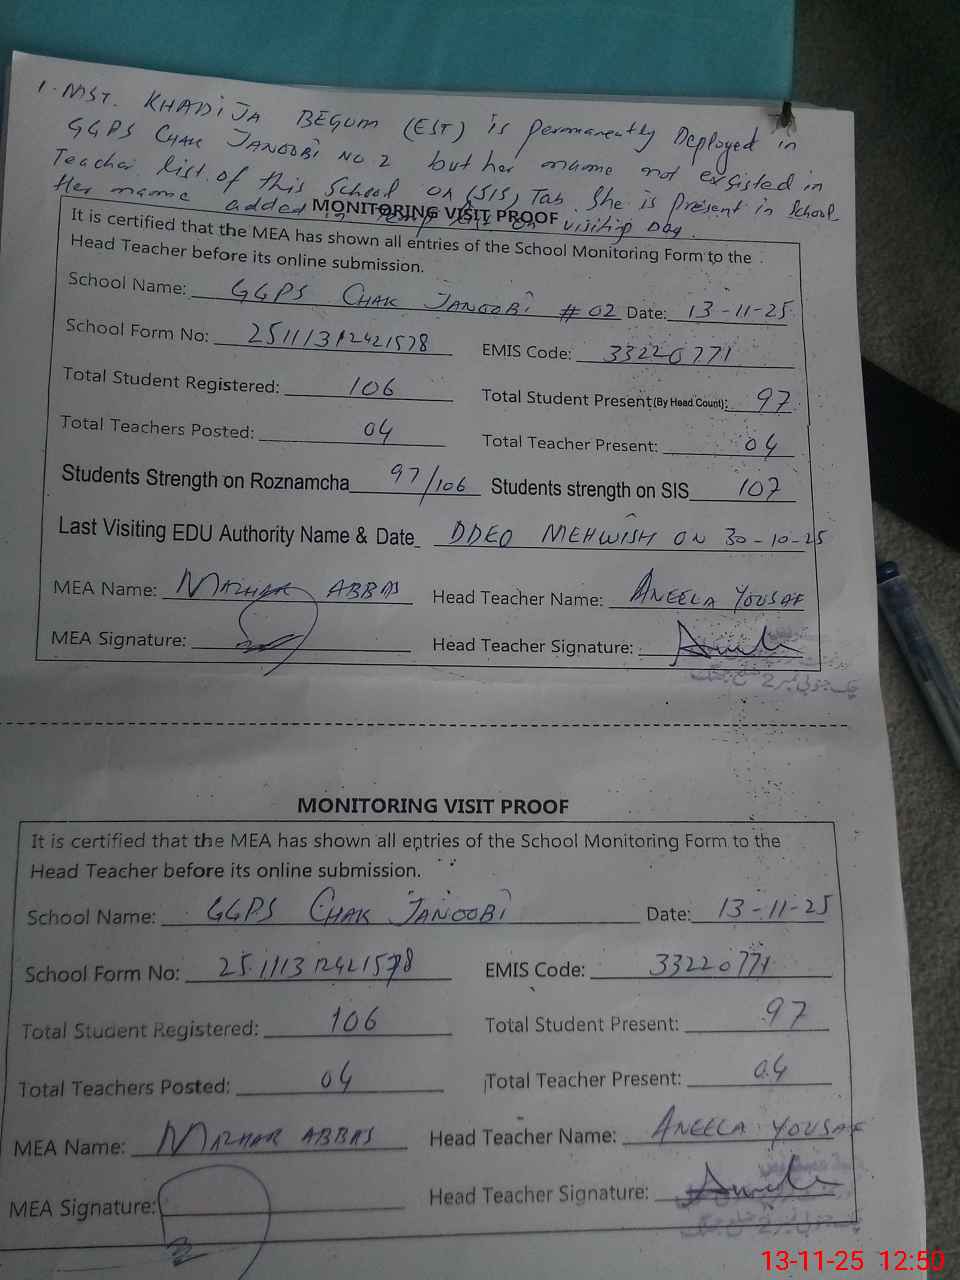 1. MST. KHADIJA BEGUM (EST) is permanently Deployed in
GGPS CHAK JANOOBI NO 2 but her name not exgisted in
Teacher list of this School on (SIS) Tab. She is present in School
Her name added in on visiting Day.
MONITORING VISIT PROOF
It is certified that the MEA has shown all entries of the School Monitoring Form to the
Head Teacher before its online submission.
School Name: GGPS CHAK JANOOBI # 02 Date: 13-11-25
School Form No: 25111312421578 EMIS Code: 33220771
Total Student Registered: 106 Total Student Present(By Head Count): 97
Total Teachers Posted: 04 Total Teacher Present: 04
Students Strength on Roznamcha 97/106 Students strength on SIS 107
Last Visiting EDU Authority Name & Date DDEO MEHWISH ON 30-10-25
MEA Name: MAZHAR ABBAS Head Teacher Name: ANEELA YOUSAF
MEA Signature: Head Teacher Signature:
چک جنوبی نمبر 2 ضلع جھنگ
MONITORING VISIT PROOF
It is certified that the MEA has shown all entries of the School Monitoring Form to the
Head Teacher before its online submission.
School Name: GGPS CHAK JANOOBI Date: 13-11-25
School Form No: 25111312421578 EMIS Code: 33220771
Total Student Registered: 106 Total Student Present: 97
Total Teachers Posted: 04 Total Teacher Present: 04
MEA Name: MAZHAR ABBAS Head Teacher Name: ANEELA YOUSAF
MEA Signature: Head Teacher Signature:
چک جنوبی نمبر 2 ضلع جھنگ
13-11-25 12:50